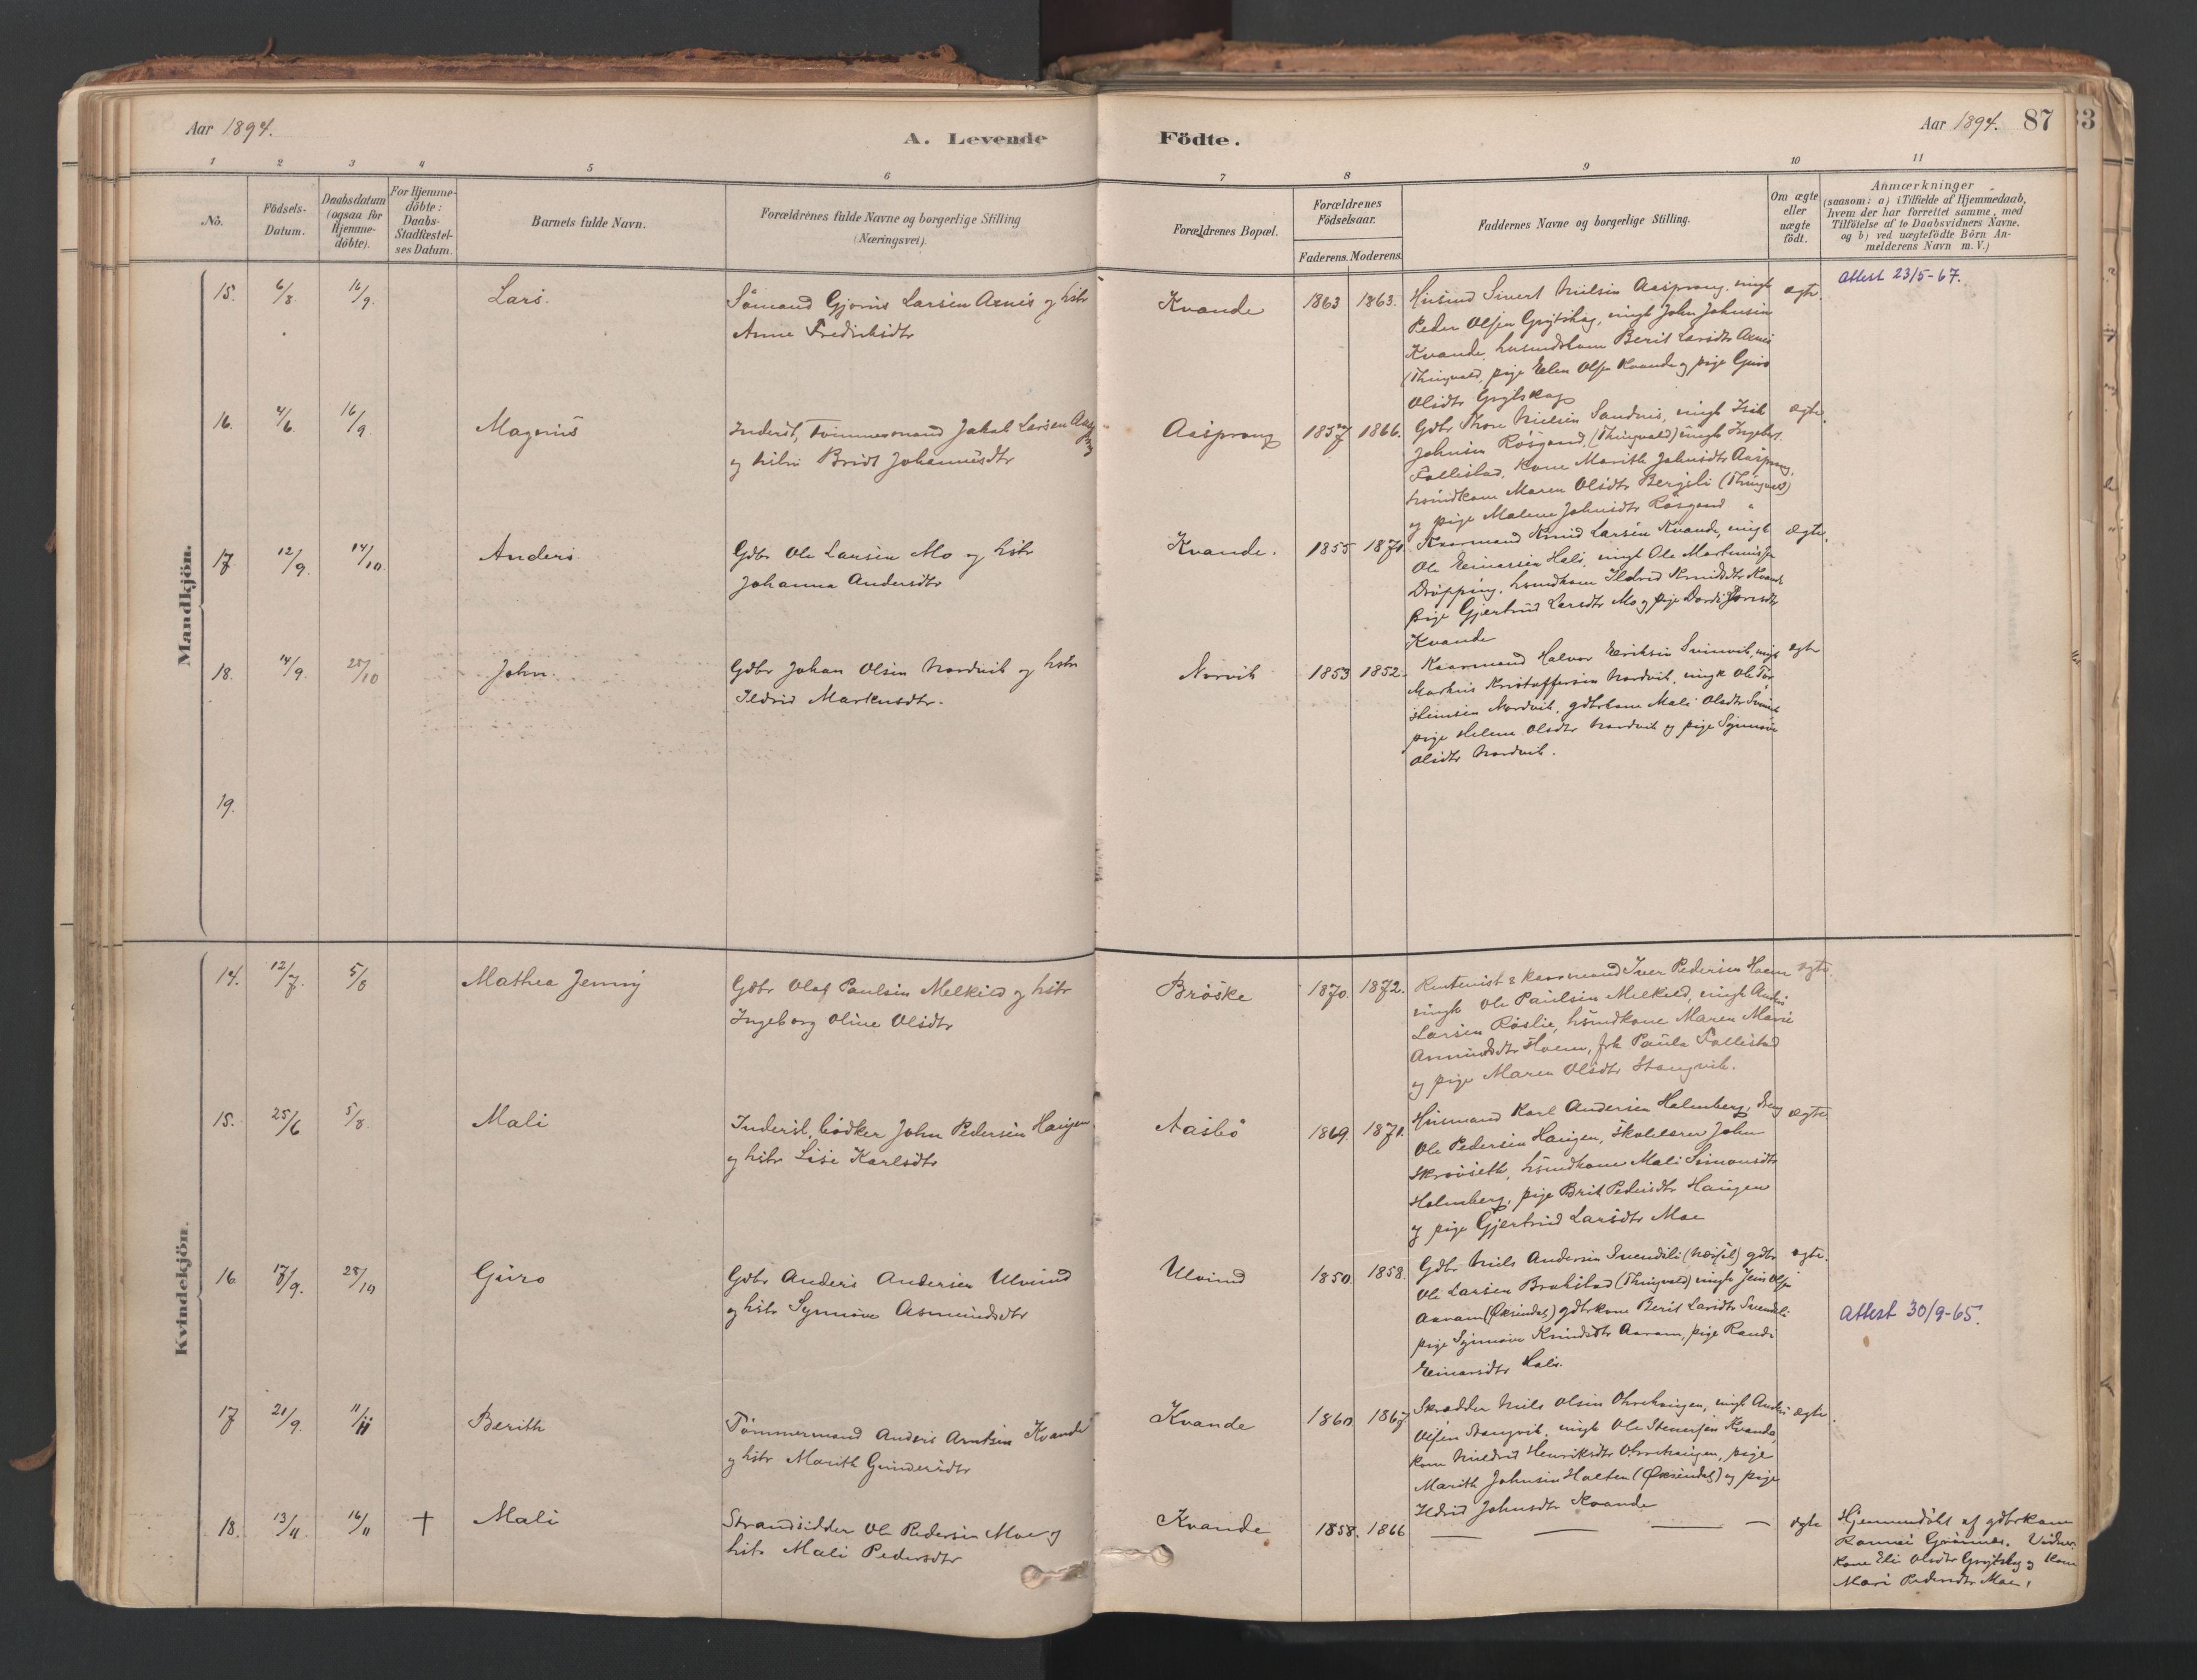 Aar 1894.
A. Levende Födte.
Aar 1894. 87
33
1 2 3 4 5 6 7 8 9 10 11
No.
Födsels-
Datum.
Daabsdatum
(ogsaa for
Hjemme-
döbte).
For Hjemme-
döbte:
Daabs-
Stadfæstel-
ses Datum.
Barnets fulde Navn.
Forældrenes fulde Navne og borgerlige Stilling
(Næringsvei).
Forældrenes Bopæl.
Forældrenes
Födselsaar.
Faderens. Moderens.
Faddernes Navne og borgerlige Stilling.
Om ægte
eller
uægte
födt.
Anmærkninger
(saasom: a) i Tilfælde af Hjemmedaab,
hvem der har forrettet samme, med
Tilföielse af to Daabsvidners Navne.
og b) ved uægtefödte Börn An-
melderens Navn m. V.)
Mandkjön.
15. 6/8. 16/9. Lars.
Sömand Gjørus Larsen Axnes og hstr
Anne Fredriksdtr
Kvande 1863 1863.
Husmd Sivert Nielsen Aasprang, ungk
Peder Olsen Grytskog, ungk John Johnsen
Kvande, husmdkone Berit Larsdtr Axnes
(Thingvold, pige Elen Olsn Kvande og pige Guro
Olsdtr Grytskog
ægte.
Attest 23/5-67.
16. 4/6. 16/9. Magnus
Inderst, Tömmermand Jakob Larsen Aasprang
og hstru Bridt Johannesdtr
Aasprang 1857 1866.
Gdbr Thore Nielsen Sandnes, ungk Esik
Johnsen Rösgaard, (Thingvold) ungk Ingebr.
Follestad, kone Marith Johnsdtr Aasprang,
husmdkone Maren Olsdtr Bergsli (Thingvold)
og pige Malene Johnsdtr Rösgaard "
ægte.
17. 12/9. 14/10. Anders
Gdbr Ole Larsen Mo og hstr
Johanna Andersdtr
Kvande. 1855 1871.
Kaarmand Knud Larsen Kvande, ungk
Ole Einarsen Hals, ungk Ole Martinusen
Dröpping, husmdkone Ildrid Knudsdtr Kvande
pige Gjertrud Larsdtr Mo og pige Dordi Larsdtr
Kvande
Ægte.
18. 14/9. 28/10 John.
Gdbr Johan Olsen Nordvik og hstr
Ildrid Markusdtr.
Norvik 1853 1852.
Kaarmand Halvor Eriksen Svinvik, ungk
Markus Kristoffersen Nordvik, ungk Ole Tor-
steinsen Nordvik, gdbrkone Mali Olsdtr Svinvik
pige Helene Olsdtr Nordvik og pige Synnöve
Olsdtr Nordvik.
ægte
19.
Kvindekjön.
14. 12/7. 5/8 Mathea Jenny
Gdbr Olaf Paulsen Melkild og hstr
Ingeborg Oline Olsdtr
Bröske 1870. 1872.
Kaarmand Iver Pedersen Hoem
ungk Ole Paulsen Melkild, ungk Anders
Larsen Röslie, husmdkone Maren Marie
Asmundsdtr Hoem, frk Paula Follestad
og pige Maren Olsdtr Stangvik.
ægte.
15. 25/6 5/8. Mali
Inderst, bödker John Pedersen Haugen
og hstr Lise Karlsdtr
Aasbö 1869. 1871.
Husmand Karl Andersen Holmberg, dreng
Ole Pedersen Haugen, skolelærer John
Skrövseth, husmdkone Mali Simonsdtr
Holmberg, pige Brit Pedersdtr Haugen
og pige Gjertrud Larsdtr Moe
ægte
16. 17/9. 28/10 Guro
Gdbr Anders Andersen Ulvund
og hstr Synnöve Asmundsdtr
Ulvund 1850 1858.
Gdbr Niels Andersen Svendsli (Næsset) gdbr
Ole Larsen Brakstad (Thingvold) ungk Jens Olsen
Aaram (Öksendal) gdbrkone Berit Larsdtr Svendsli
pige Synnöve Knudsdtr Aaram, pige Randi
Einarsdtr Hals.
ægte.
Attest 30/9-65.
17 21/9. 11/11 Berith
Tömmermand Anders Arntsen Kvande
og hstr Marith Gundersdtr
Kvande 1860 1867
Skrædder Niels Olsen Ohrehaugen, ungk Anders
Olsen Stangvik, ungk Ole Stenersen Kvande,
kone Mildrid Henriksdtr Ohrehaugen, pige
Marith Johnsen Holten (Öksendal) og pige
Ildrid Johnsdtr Kvande
ægte.
18. 13/11. 16/11 † Mali
Strandsidder Ole Pedersen Moe og
hstr Mali Pedersdtr
Kvande 1858. 1866 — — — —
ægte
Hjemmedöbt af gdbrkone
Rannei Grönnes. Vidner:
Kone Eli Olsdtr Grytskog og Kone
Mari Pedersdtr Moe.